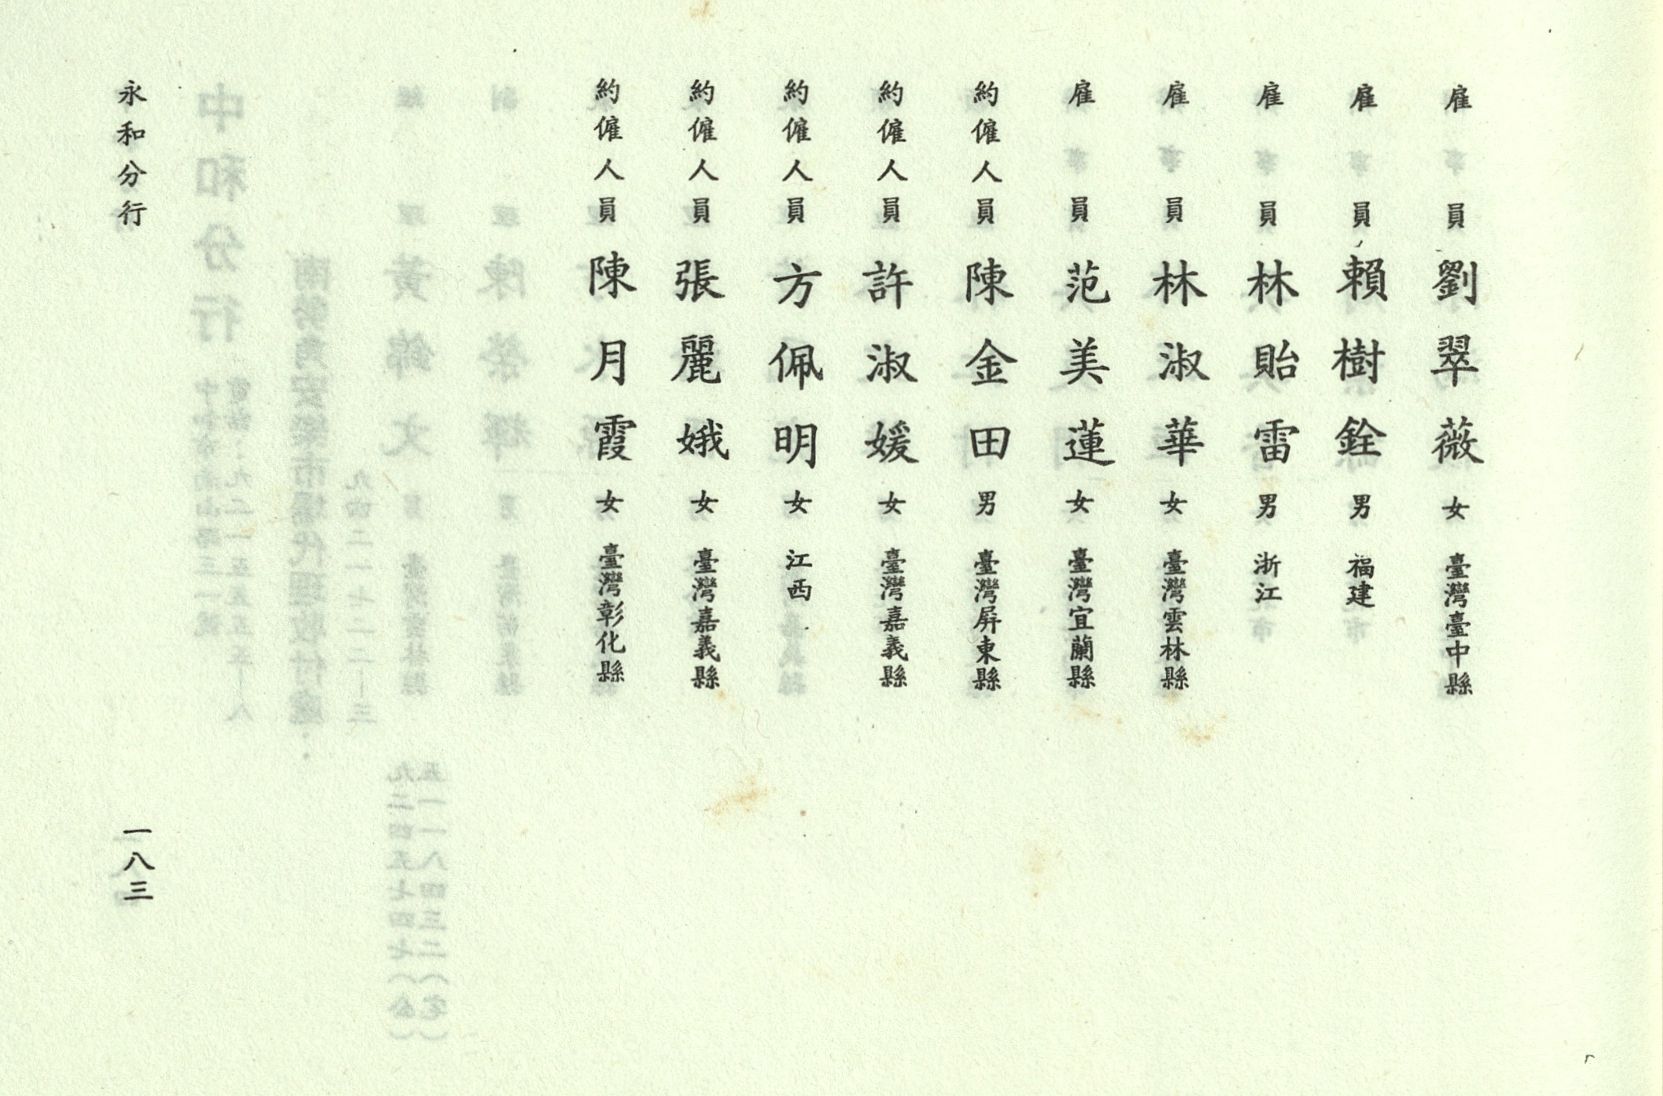 雇員劉翠薇女臺灣臺中縣
雇員賴樹銓男福建
雇員林貽雷男浙江
雇員林淑華女臺灣雲林縣
雇員范美蓮女臺灣宜蘭縣
約僱人員陳金田男臺灣屏東縣
約僱人員許淑媛女臺灣嘉義縣
約僱人員方佩明女江西
約僱人員張麗娥女臺灣嘉義縣
約僱人員陳月霞女臺灣彰化縣
永和分行
一八三